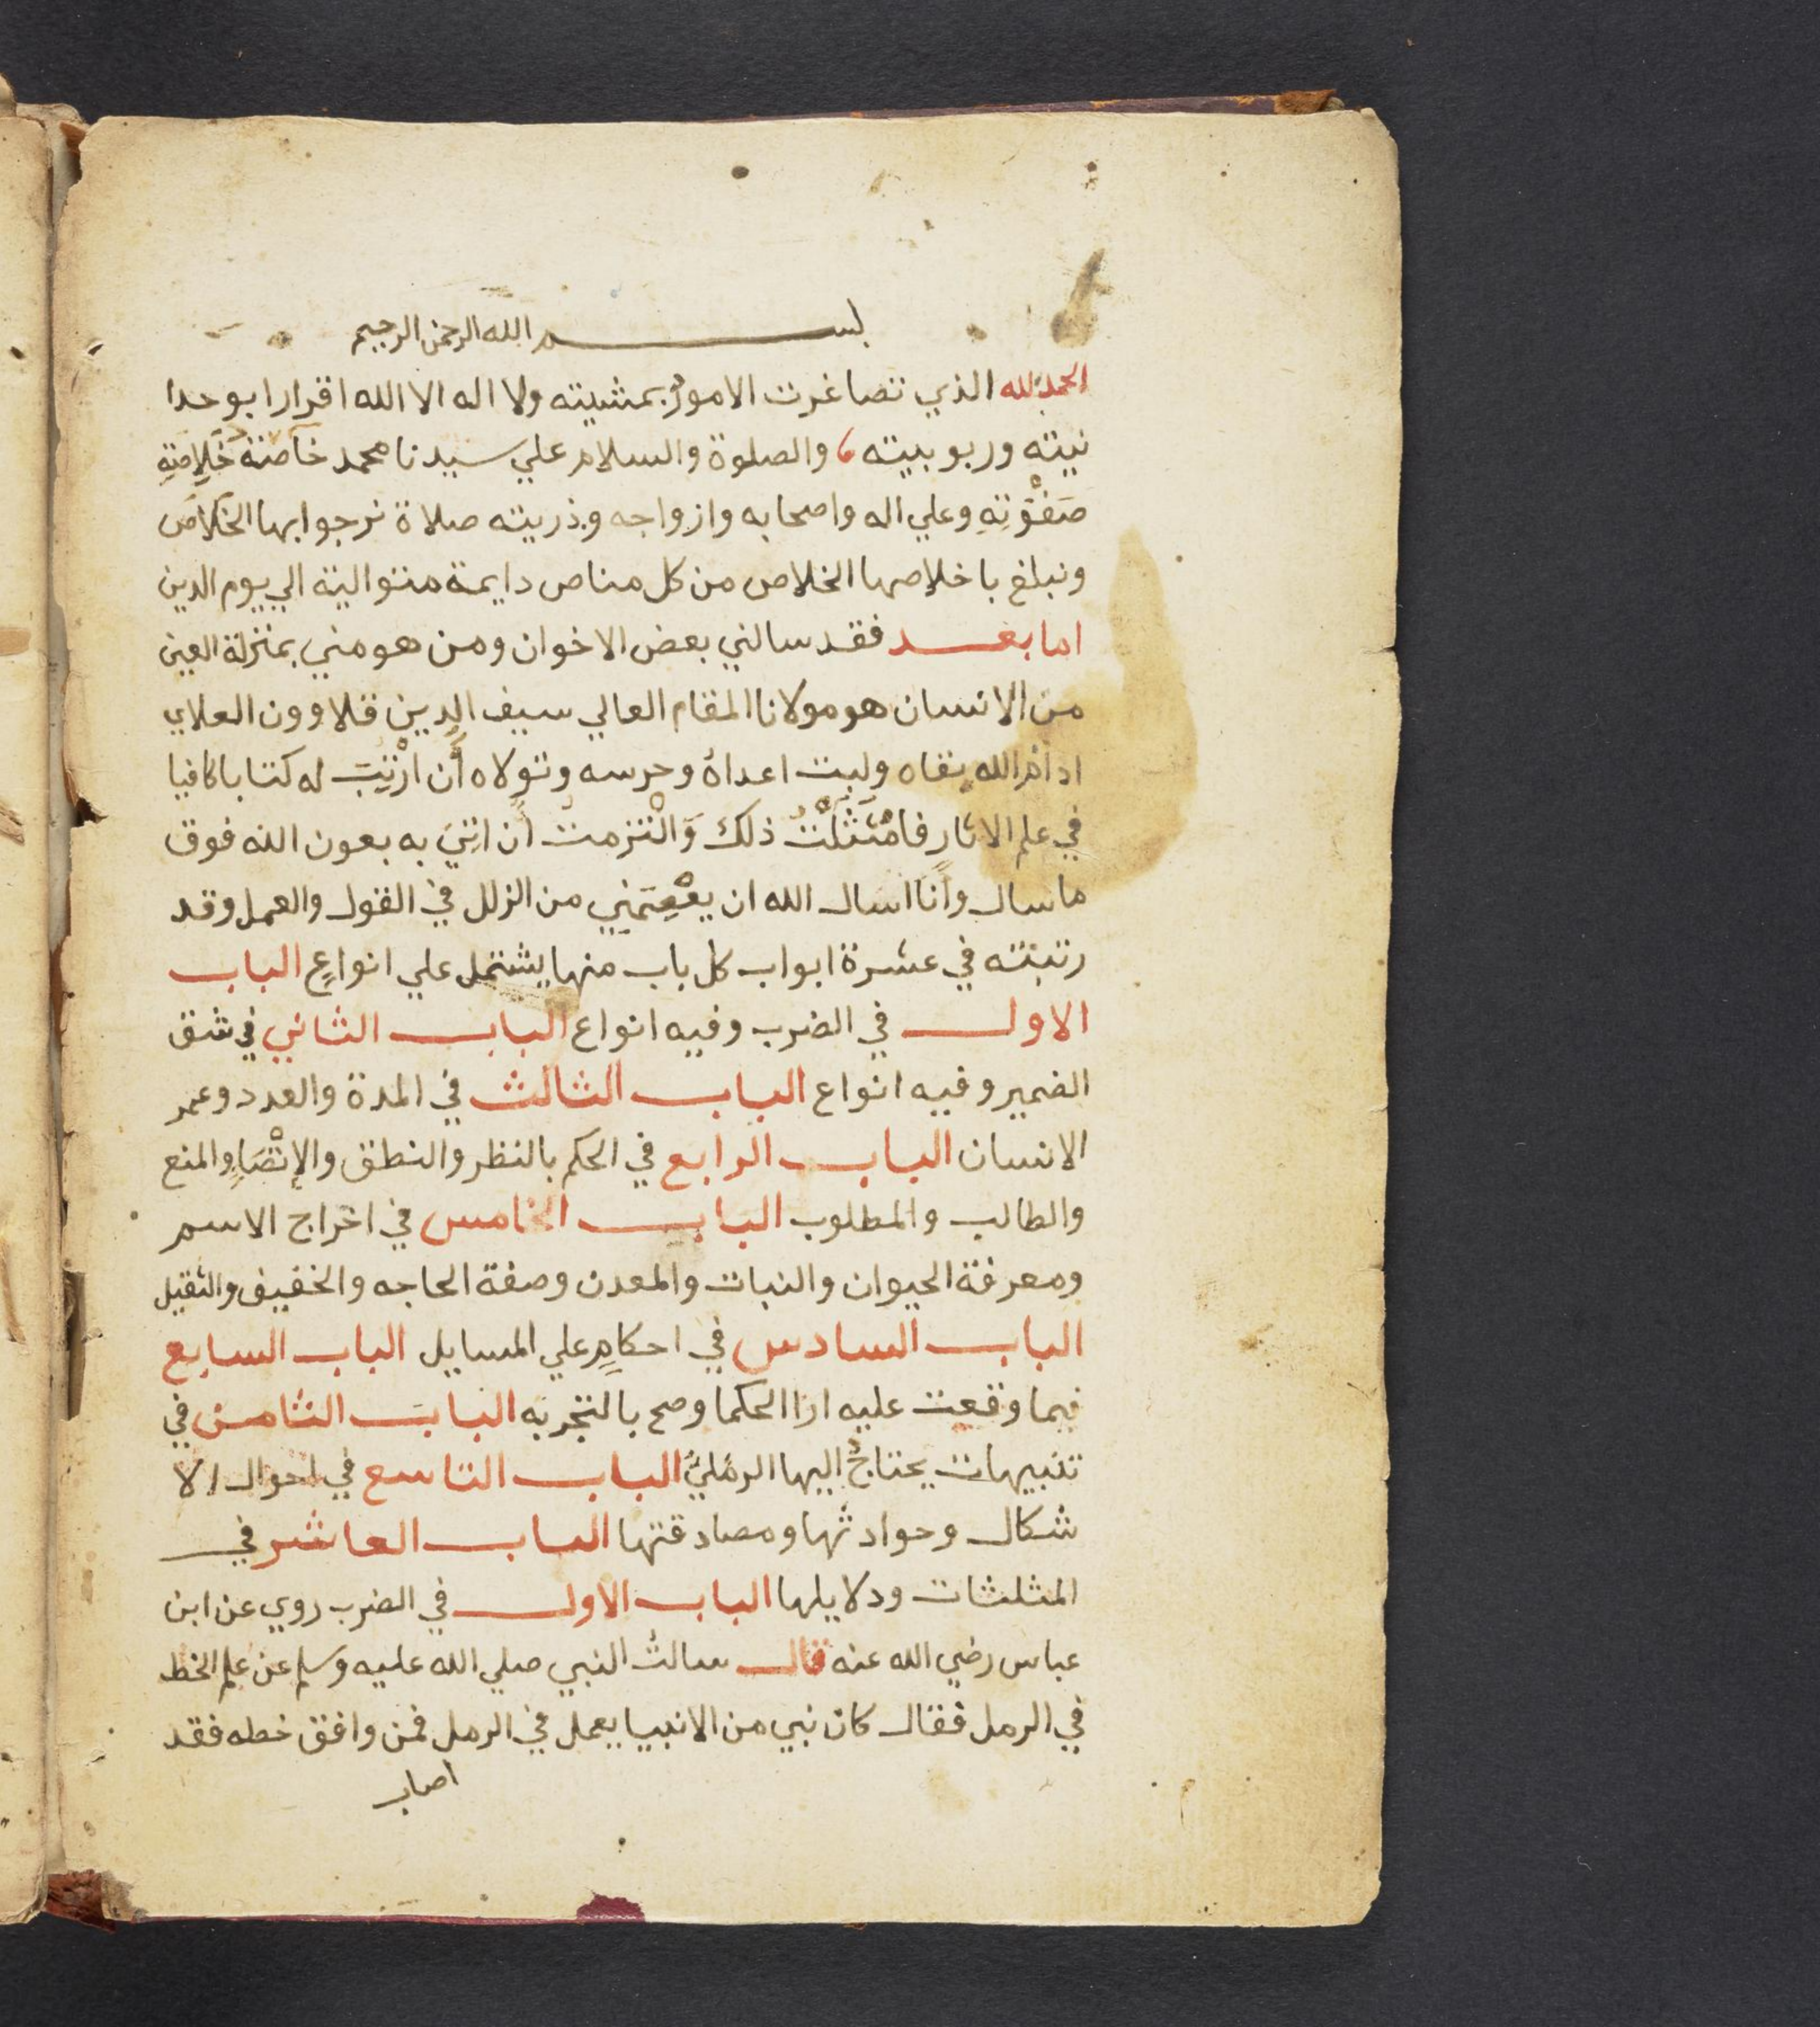 بسم الله الرحمن الرحيم
الحمد لله الذي تصاغرت الامور بمشيته ولا اله الا الله اقرارا بوحدا
نيته وربوبيته والصلوة والسلام علي سيدنا محمد خاصة خَلاِصَتِهِ
صَفْوَتِهِ وعلي اله واصحابه وازواجه وذريته صلاة نرجوا بها الخلاص
ونبلغ باخلاصها الخلاص من كل مناص دايمة متوالية الي يوم الدين
اما بعد فقد سالني بعض الاخوان ومن هو مني بمنزلة العين
من الانسان هو مولانا المقام العالي سيف الدين قلاوون العلاي
ادام الله بقاه وكبت اعداهُ وحرسه وتولاه أن ارْتِبَ له كتابا كافيا
في علم الاثار فامْتَثَلْتُ ذلك وَالْتزمت ان اتِيَ به بعون الله فوق
ما سال وأنا اسال الله ان يعْصِمَنِي من الزلل في القول والعمل وقد
رتبته في عشرة ابواب كل باب منها يشتمل علي انواعٍ الباب
الاول في الضرب وفيه انواع الباب الثاني في شق
الضمير وفيه انواع الباب الثالث في المدة والعدد وعمر
الانسان الباب الرابع في الحكم بالنظر والنطق والإتْصَالِ والمنع
والطالب والمطلوب الباب الخامس في اخراج الاسم
ومعرفة الحيوان والنبات والمعدن وصفة الحاجه والخفيف والثقيل
الباب السادس في احكامٍ علي المسايل الباب السابع
فيما وقعت عليه ارا الحكما وصح بالتجربه الباب الثامن في
تنبيهات يحتاجُ اليها الرمليُّ الباب التاسع في احوال الا
شكال وحوادثها ومصادقتها الباب العاشر في
المثلثات ودلايلها الباب الاول في الضرب روي عن ابن
عباس رضي الله عنه قال سالتُ النبي صلي الله عليه وسلم عن علم الخط
في الرمل فقال كان نبي من الانبيا يعمل في الرمل فمن وافق خطه فقد
اصاب